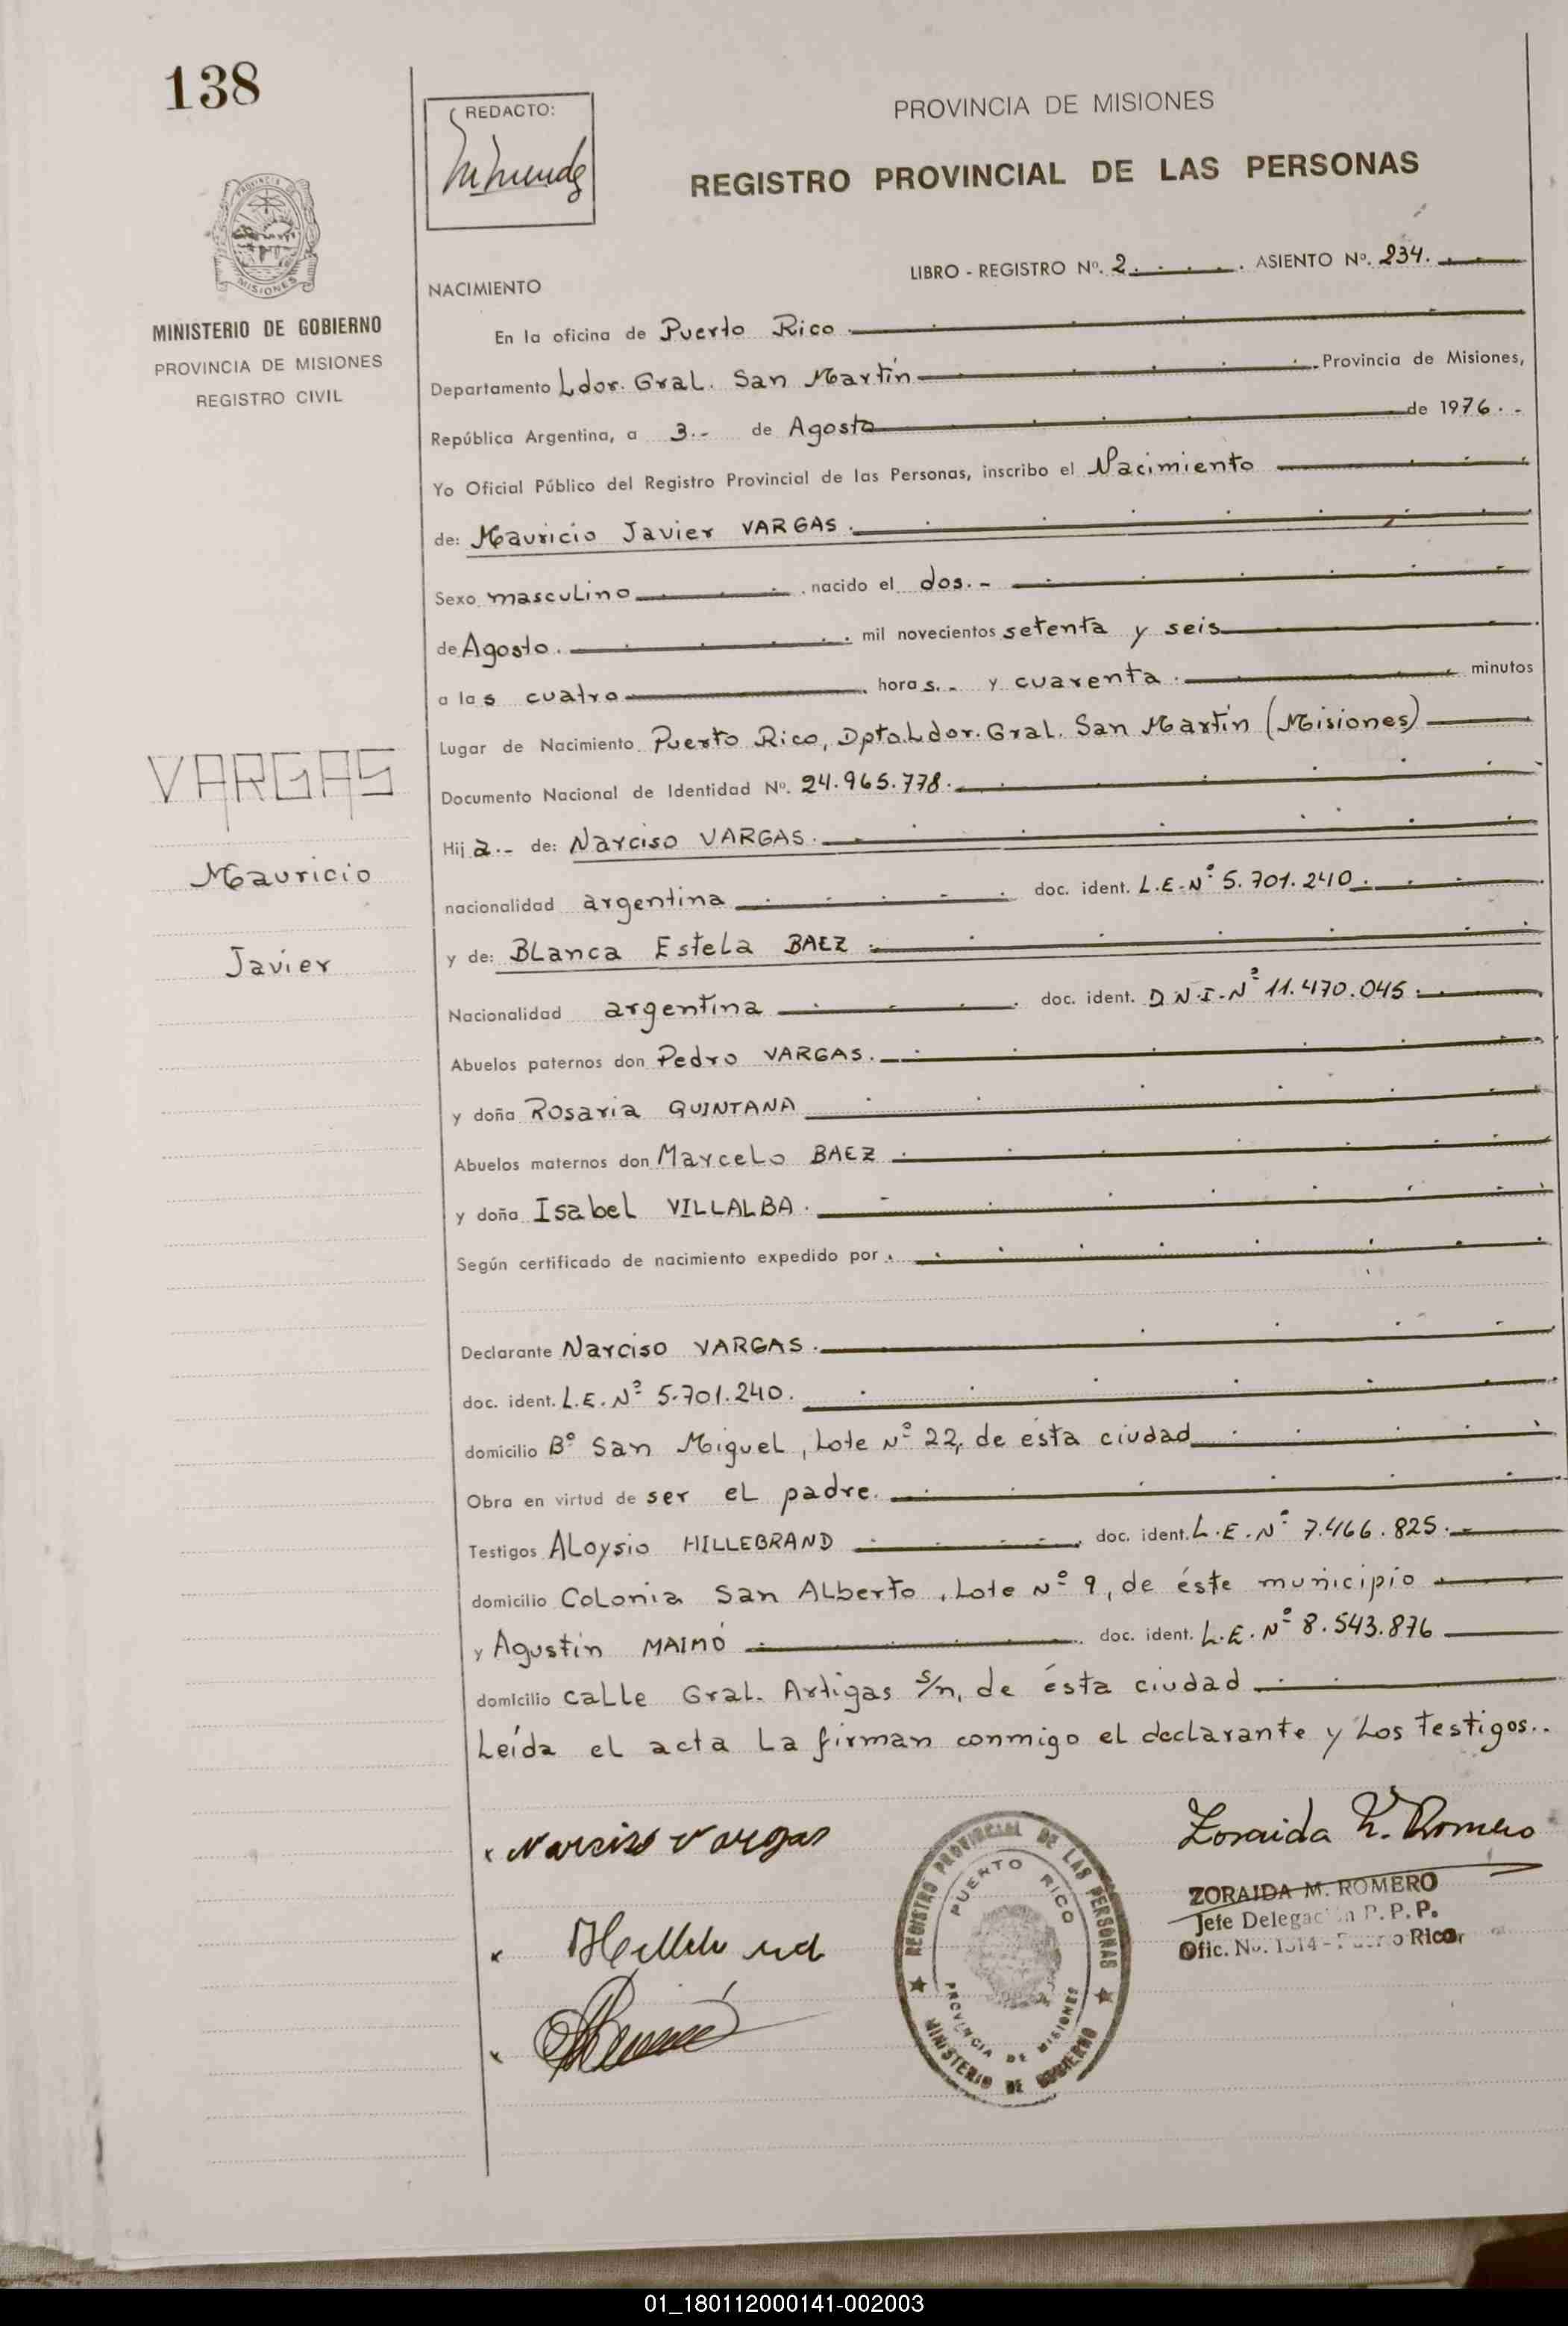 138
REDACTO:
PROVINCIA DE MISIONES
REGISTRO PROVINCIAL DE LAS PERSONAS
PROVINCIA DE
MISIONES
MINISTERIO DE GOBIERNO
PROVINCIA DE MISIONES
REGISTRO CIVIL
LIBRO - REGISTRO Nº. 2. ASIENTO Nº. 234.
NACIMIENTO
En la oficina de Puerto Rico
Departamento Ldor. Gral. San Martín Provincia de Misiones,
República Argentina, a 3.- de Agosto de 1976.-
Yo Oficial Público del Registro Provincial de las Personas, inscribo el Nacimiento
de: Mauricio Javier VARGAS.
Sexo masculino nacido el dos.-
de Agosto. mil novecientos setenta y seis
a las cuatro horas.- y cuarenta. minutos
Lugar de Nacimiento Puerto Rico, Dpto.Ldor.Gral. San Martín (Misiones)
VARGAS
Mauricio
Javier
Documento Nacional de Identidad Nº. 24.965.778.
Hij a.- de: Narciso VARGAS.
nacionalidad argentina doc. ident. L.E.Nº 5.701.240.
y de: Blanca Estela BAEZ
Nacionalidad argentina doc. ident. D.N.I.Nº 11.470.045.
Abuelos paternos don Pedro VARGAS.
y doña Rosaria QUINTANA
Abuelos maternos don Marcelo BAEZ
y doña Isabel VILLALBA.
Según certificado de nacimiento expedido por
Declarante Narciso VARGAS.
doc. ident. L.E. Nº 5.701.240.
domicilio Bº San Miguel, Lote Nº 22, de ésta ciudad
Obra en virtud de ser el padre.
Testigos Aloysio HILLEBRAND doc. ident. L.E.Nº 7.466.825.
domicilio Colonia San Alberto, Lote Nº 9, de éste municipio
y Agustín MAIMÓ doc. ident. L.E.Nº 8.543.876
domicilio calle Gral. Artigas s/n, de ésta ciudad
Leída el acta la firman conmigo el declarante y los testigos..
Narciso Vargas
Zoraida M. Romero
ZORAIDA M. ROMERO
Jefe Delegación P.P.P.
Ofic. No. 1314 - Puerto Rico
REGISTRO PROVINCIAL DE LAS PERSONAS
PUERTO RICO
PROVINCIA DE MISIONES
MINISTERIO DE GOBIERNO
01_180112000141-002003